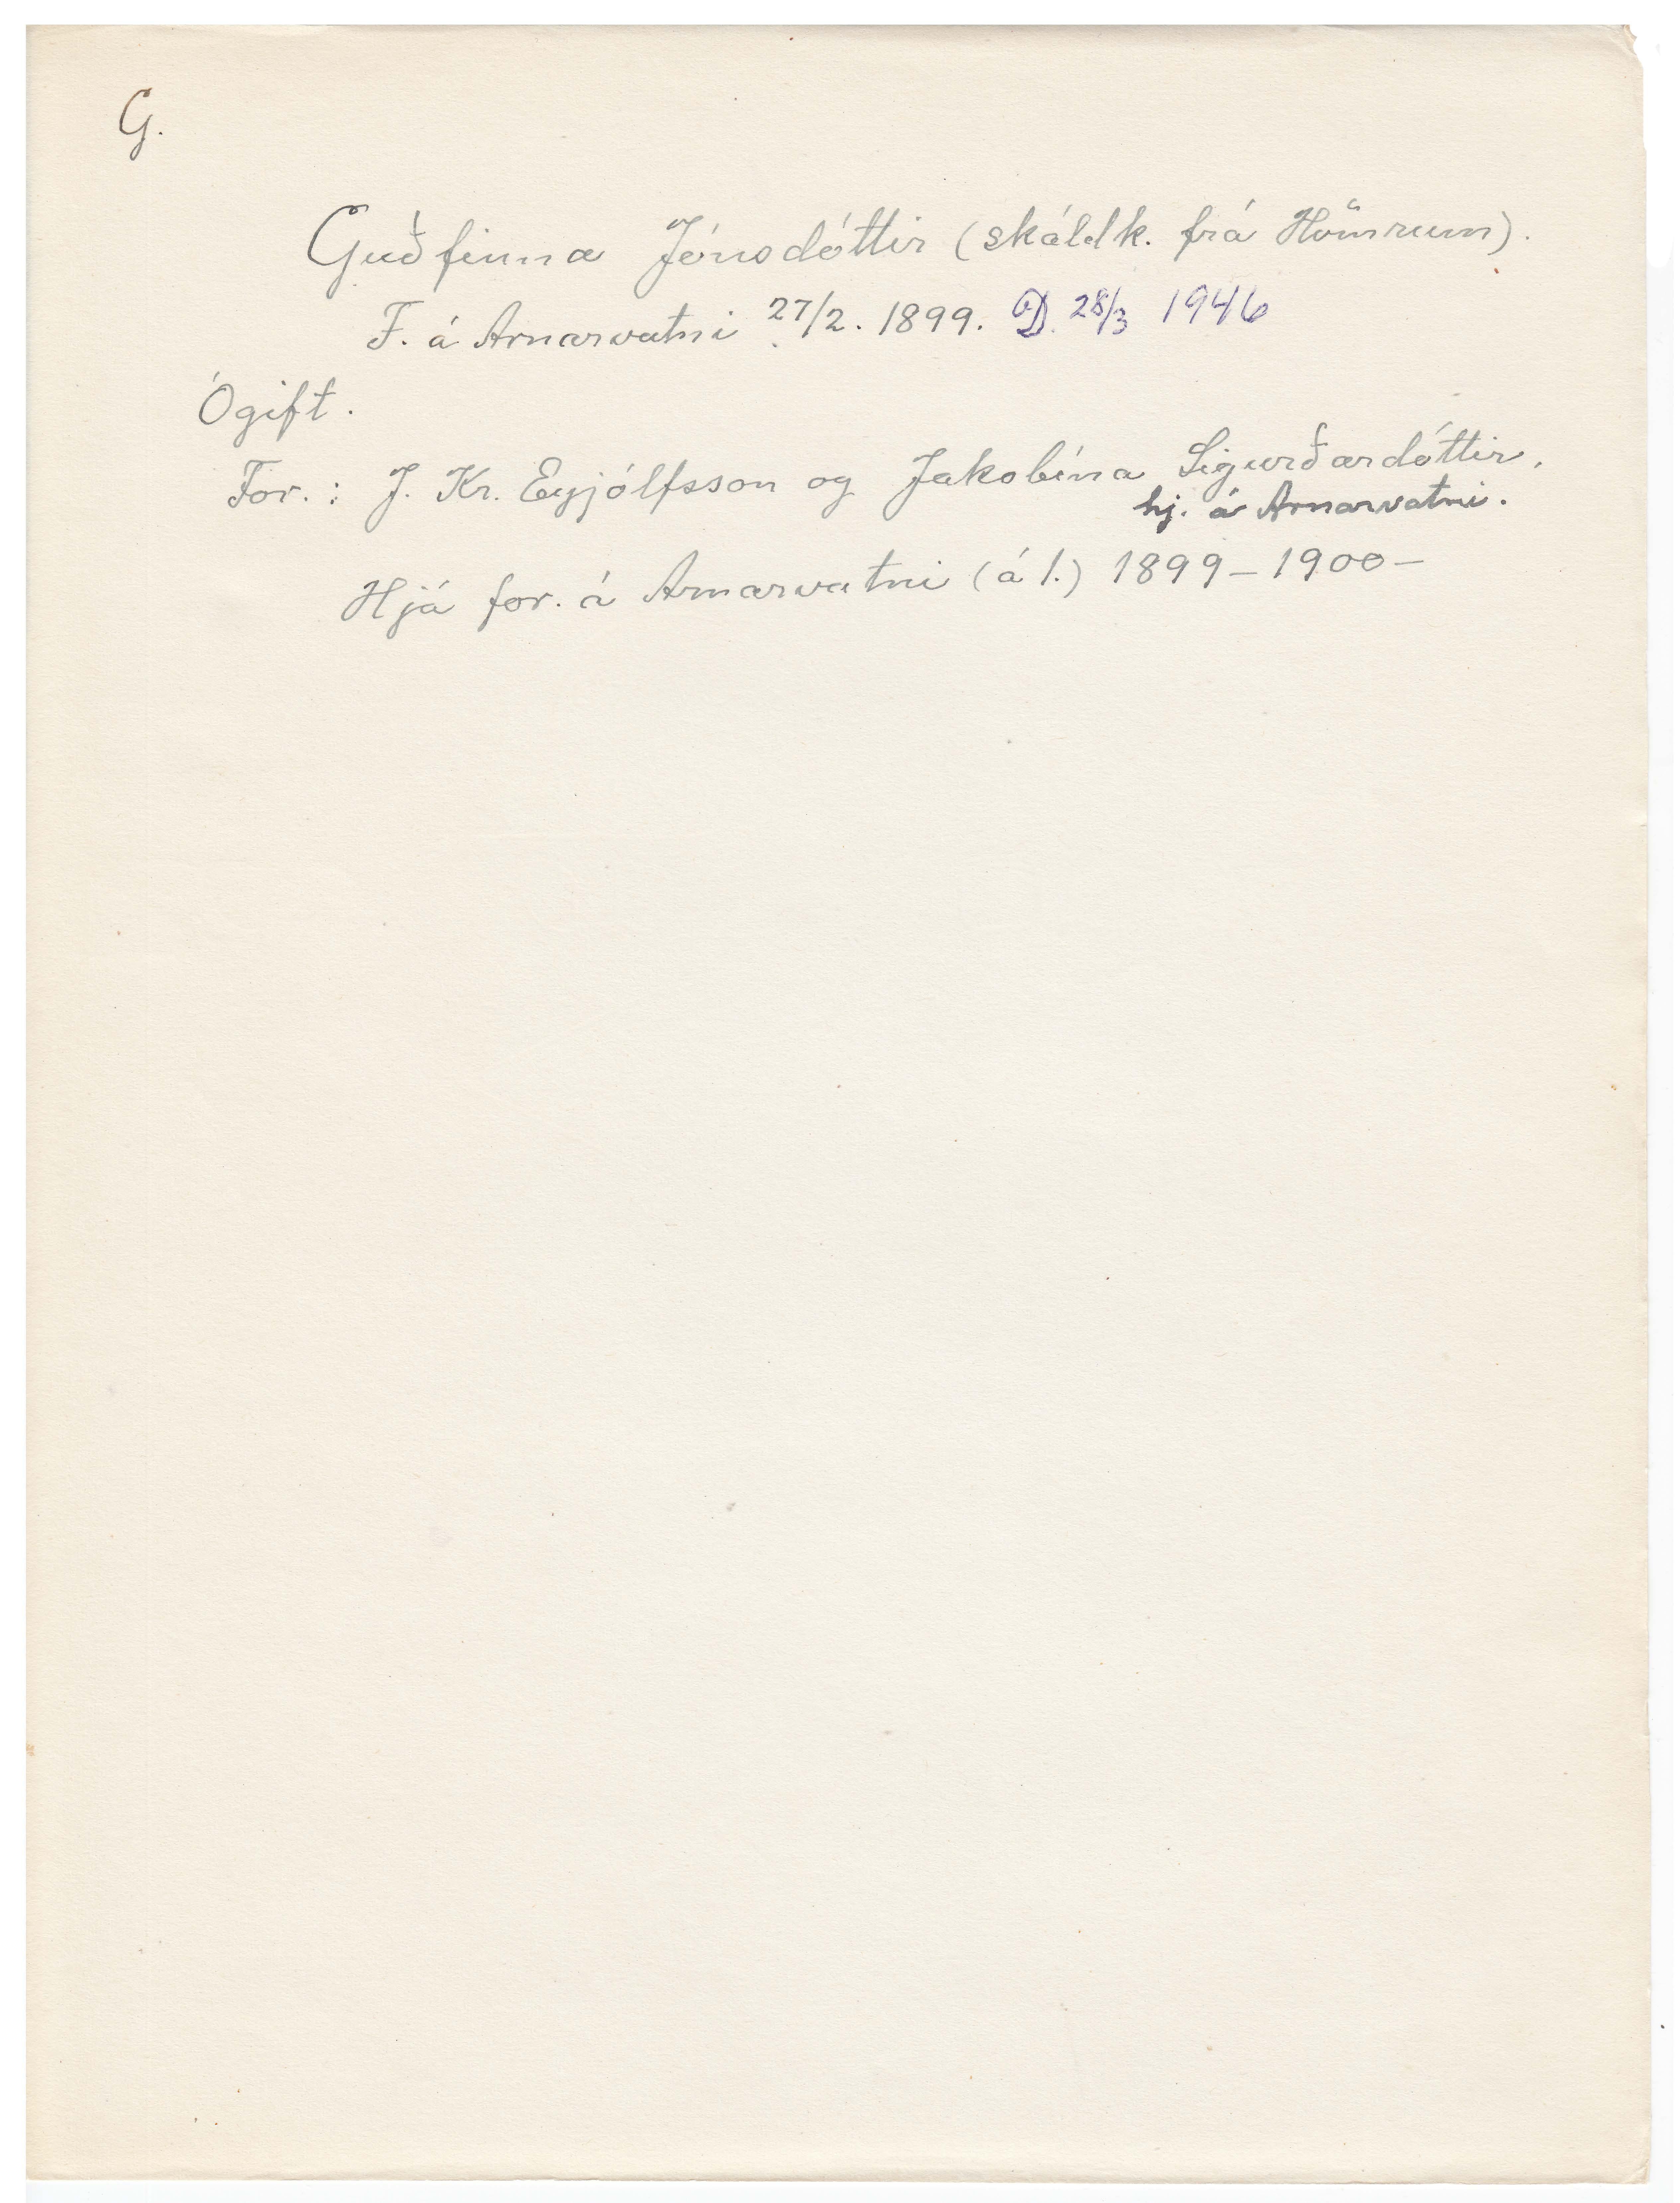 G.
Guðfinna Jónsdóttir (skáldk. frá Hömrum).
F. á Arnarvatni 27/2. 1899. D. 28/3 1946
Ógift.
For.: J. Kr. Eyjólfsson og Jakobína Sigurðardóttir,
hj. á Arnarvatni.
Hjá for. á Arnarvatni (á 1.) 1899 – 1900 –